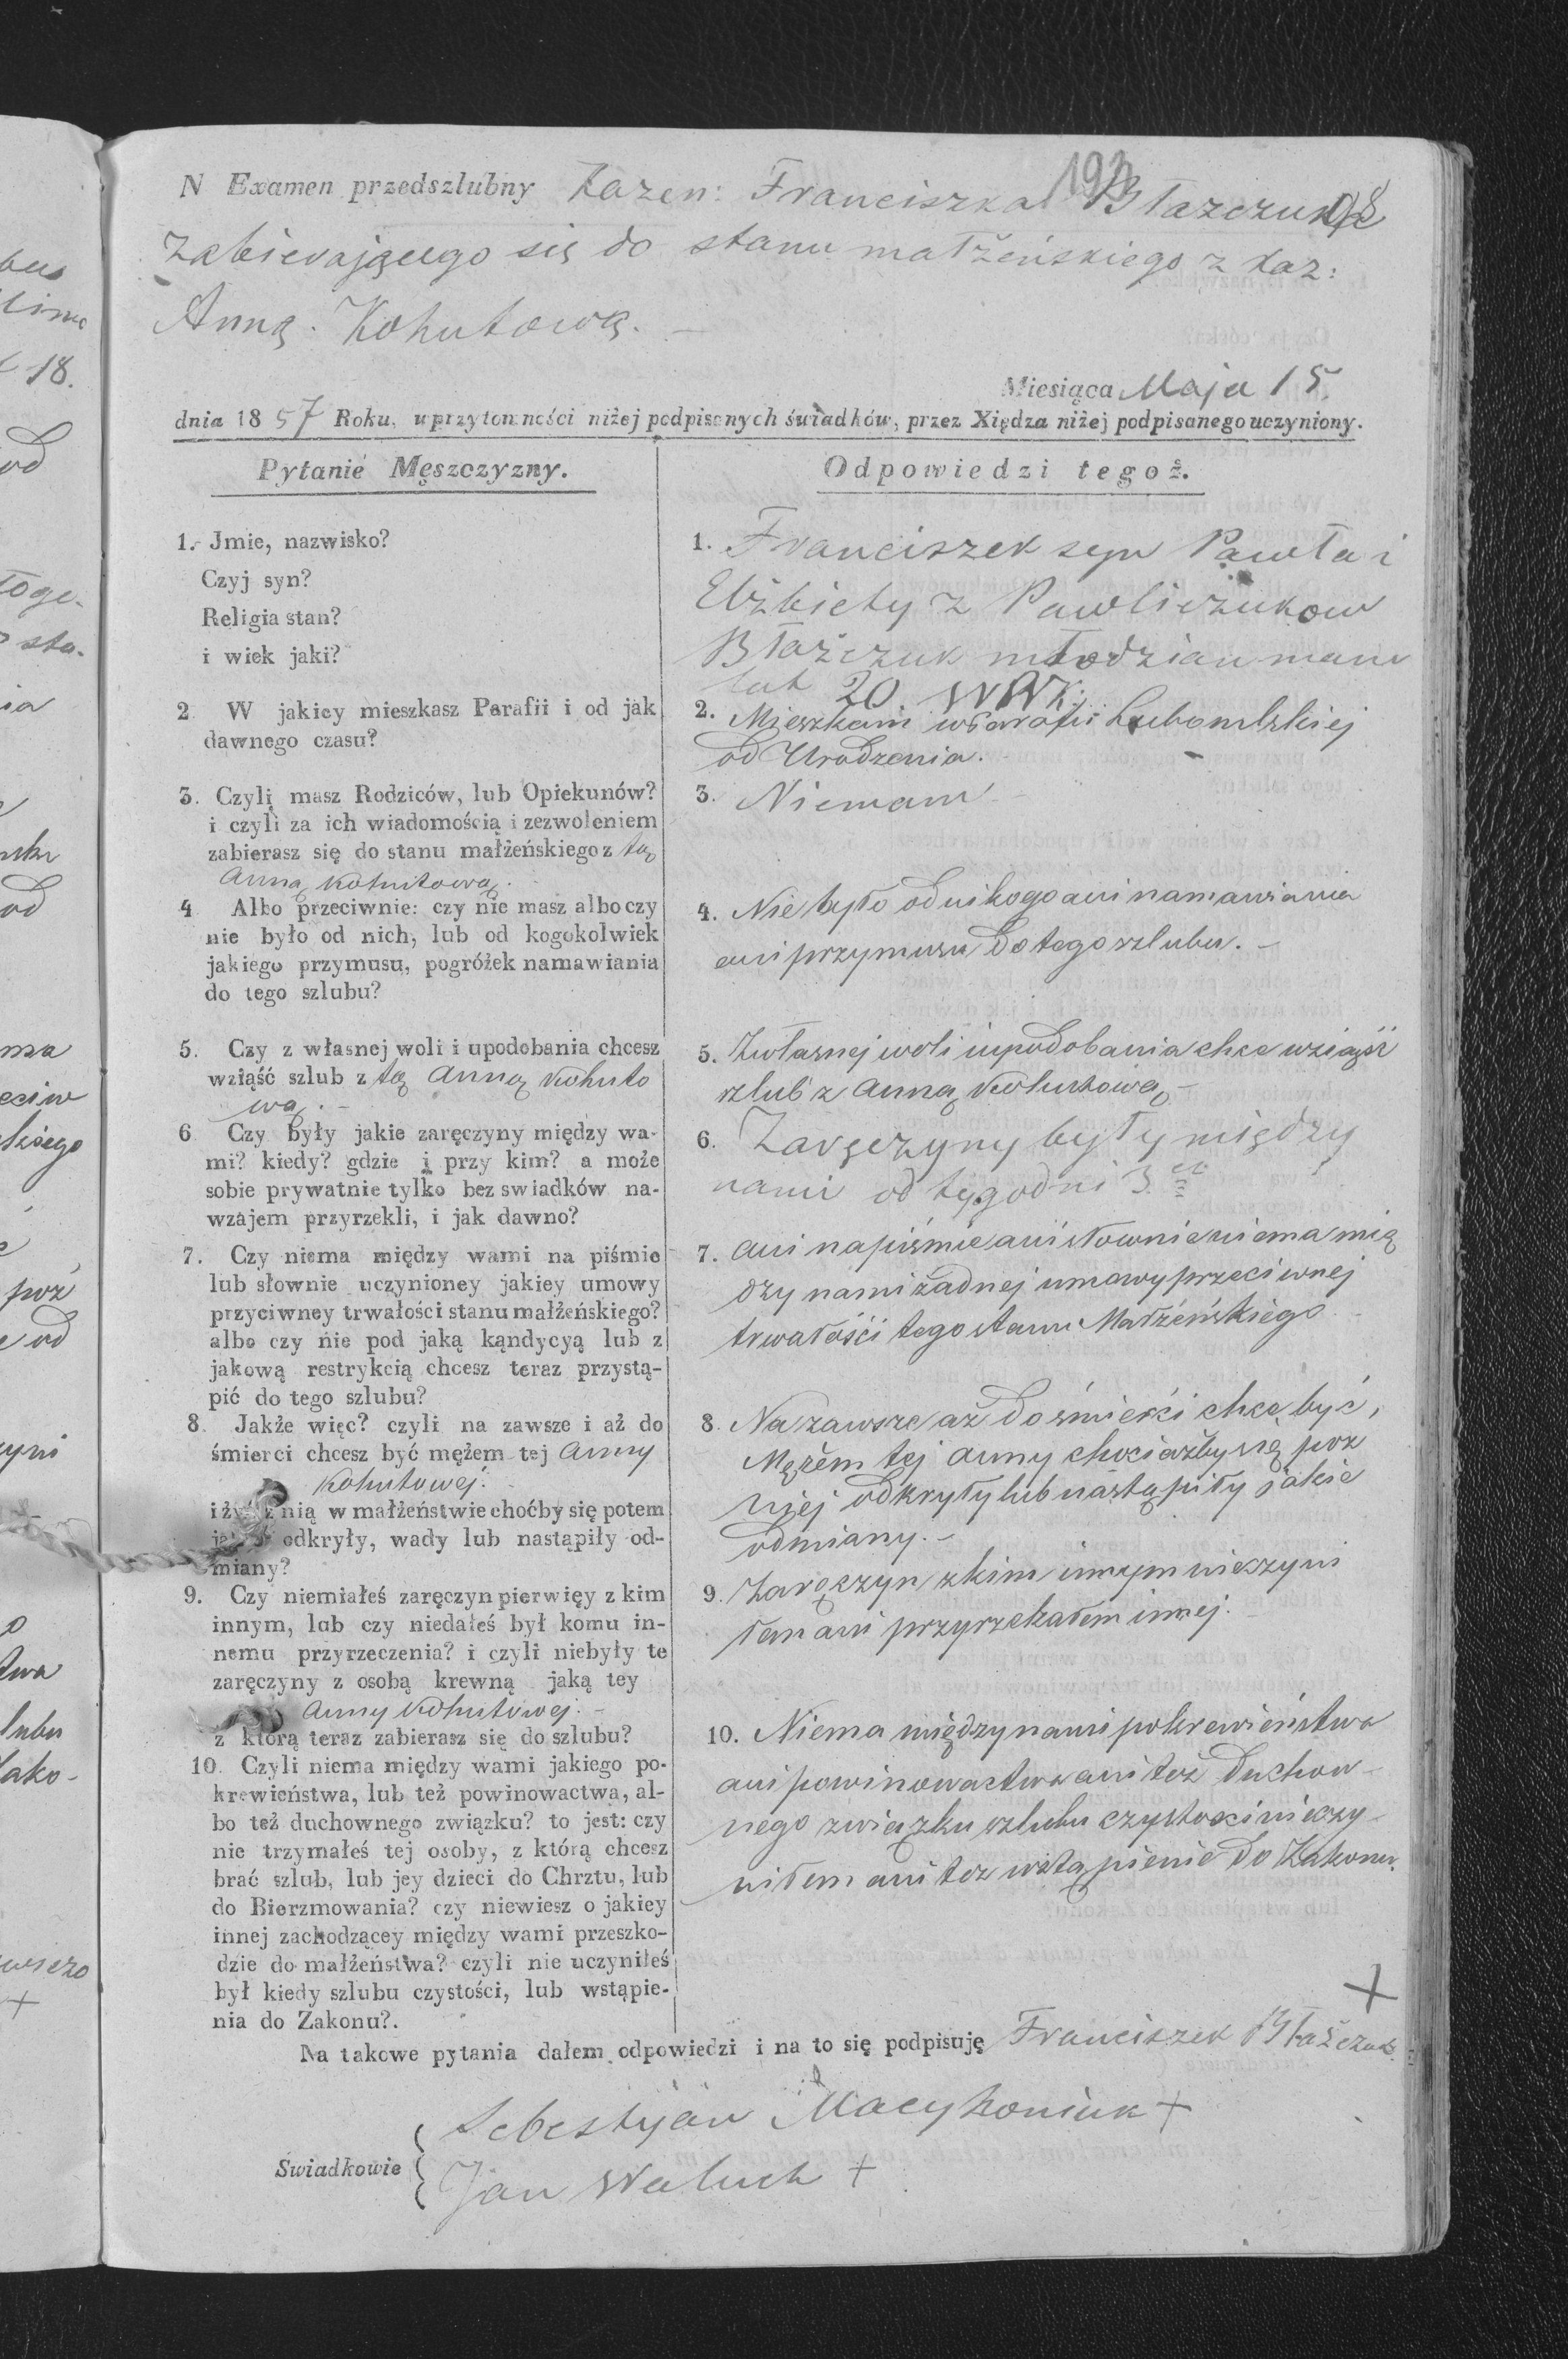 193
98
N Examen przedszlubny Kazen: Franciszka Błazczuka
Zabierającego się do stanu małżeńskiego z kaz:
Anną Kohutową.
Miesiąca Maja 15.
dnia 1857 Roku, w przytomności niżej podpisanych świadków, przez Xiędza niżej podpisanego uczyniony.
Pytanie Męszczyzny.
1. Jmie, nazwisko?
Czyj syn?
Religia stan?
i wiek jaki?
2. W jakiey mieszkasz Parafii i od jak
dawnego czasu?
3. Czyli masz Rodziców, lub Opiekunów?
i czyli za ich wiadomością i zezwoleniem
zabierasz się do stanu małżeńskiego z tą
Anną Kohutową.
4 Albo przeciwnie: czy nie masz albo czy
nie było od nich, lub od kogokolwiek
jakiego przymusu, pogróżek namawiania
do tego szlubu?
5. Czy z własnej woli i upodobania chcesz
wziąść szlub z tą Anną Kohuto
wą.
6 Czy były jakie zaręczyny między wa-
mi? kiedy? gdzie i przy kim? a może
sobie prywatnie tylko bez swiadków na-
wzajem przyrzekli, i jak dawno?
7. Czy niema między wami na piśmie
lub słownie uczynioney jakiey umowy
przyciwney trwałości stanu małżeńskiego?
albo czy nie pod jaką kąndycyą lub z
jakową restrykcią chcesz teraz przystą-
pić do tego szlubu?
8. Jakże więc? czyli na zawsze i aż do
śmierci chcesz być mężem tej Anny
Kohutowej.
i żyć z nią w małżeństwie choćby się potem
odkryły, wady lub nastąpiły od-
miany?
9. Czy niemiałeś zaręczyn pierwięy z kim
innym, lub czy niedałeś był komu in-
nemu przyrzeczenia? i czyli niebyły te
zaręczyny z osobą krewną jaką tey
Anny Kohutowej.
z którą teraz zabierasz się do szlubu?
10. Czyli niema między wami jakiego po-
krewieństwa, lub też powinowactwa, al-
bo też duchownego związku? to jest: czy
nie trzymałeś tej osoby, z którą chcesz
brać szlub, lub jey dzieci do Chrztu, lub
do Bierzmowania? czy niewiesz o jakiey
innej zachodzącey między wami przeszko-
dzie do małżeństwa? czyli nie uczyniłeś
był kiedy szlubu czystości, lub wstąpie-
nia do Zakonu?.
Odpowiedzi tegoż.
1. Franciszek syn Pawła i
Elżbiety z Pawliczuków
Błażczuk młodzian mam
lat 20
2. Mieszkam w Parafii Lubomlskiej
od Urodzenia.
3. Niemam
4. Nie było od nikogo ani namawiania
ani przymusu do tego szlubu.
5. Z własnej woli i upodobania chcę wziąść
szlub z Anną Kohutową
6. Zaręczyny były między
nami od tygodni 3
7. Ani na piśmie ani słownie niema mię
dzy nami żadnej umowy przeciwnej
trwałości tego stanu Małżeńskiego
8. Na zawsze aż do śmierci chcę być,
Mężem tej Anny chociażby się poz
niej odkryły lub nastąpiły jakie
odmiany.
9. Zaręczyn z kim innym nieczyni
łem ani przyrzekałem innej.
10. Niema między nami pokrewieństwa
ani powinowactwa ani też duchow-
nego związku szlubu czystości nieczy-
niłem ani też wstąpienie do Zakonu.
+
Na takowe pytania dałem odpowiedzi i na to się podpisuję Franciszek Błażczuk
Swiadkowie
Sebestyjan Macyhoniuk +
Jan Waluch +